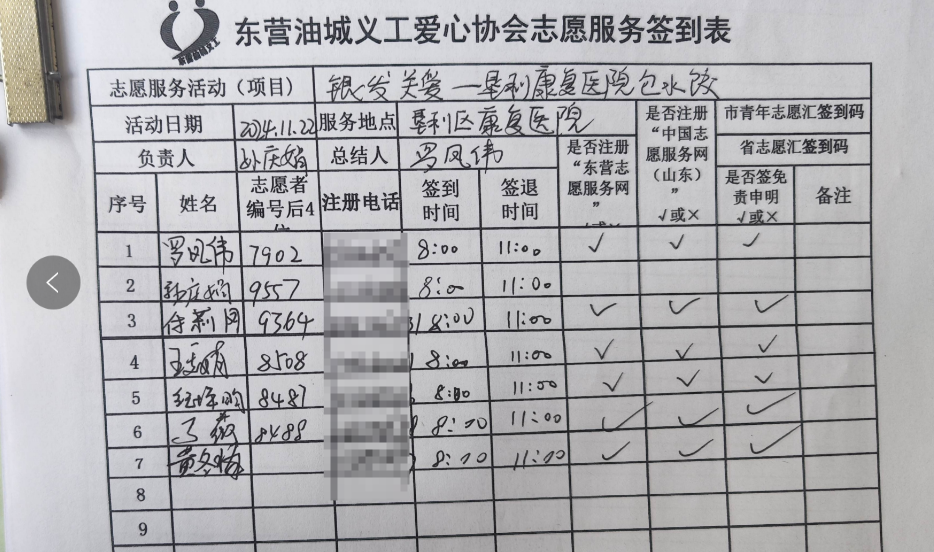 东营油城义工爱心协会志愿服务签到表
志愿服务活动（项目） 银发关爱—垦利康复医院包水饺
活动日期 2024.11.22 服务地点 垦利区康复医院
负责人 孙庆娟 总结人 罗凤伟
是否注册“东营志愿服务网” √或×
是否注册“中国志愿服务网（山东）” √或×
市青年志愿汇签到码
省志愿汇签到码
序号 姓名 志愿者编号后4位 注册电话 签到时间 签退时间 是否签免责申明 √或× 备注
1 罗凤伟 7902 8:00 11:00 ✓ ✓ ✓
2 孙庆娟 9557 8:00 11:00
3 9364 8:00 11:00 ✓ ✓ ✓
4 8508 8:00 11:00 ✓ ✓ ✓
5 8487 8:00 11:00 ✓ ✓ ✓
6 8488 8:00 11:00 ✓ ✓ ✓
7 黄冬梅 8:00 11:00 ✓ ✓ ✓
8
9